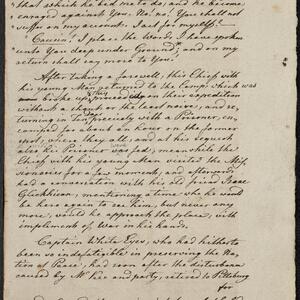 that which he bid me to do, and he become
enraged against You; No, no! You shall not
suffer on my account. I act for myself!
"Cousin!" I place the Words, I have spoken
unto You deep under Ground; and on my
return shall say more to You!
After taking a farewell; this Chief with
his young Men returned to the Camp: which was
broke up, and their expedition
without a shout or the least noise; and re=
turning in Ten days precisely with a Prisoner, en=
camped for about an hour on the former
spot, where they all; and at his request
also his Prisoner was fed; meanwhile the
Chief with his young Men visited the Mis=
sionaries for a few moments; and afterwards
had a conversation with his old friend Isaac
Glickhican, mentioning a time, when he would
be here again to see him, but never any
more, would he approach the place, with
impliments of War in his hands.
Captain White Eyes, who had hitherto
been so indefatigable in preserving the Na=
tion at Peace; had soon after the disturbance
caused by McKee and party, retired to Pittsburg
for